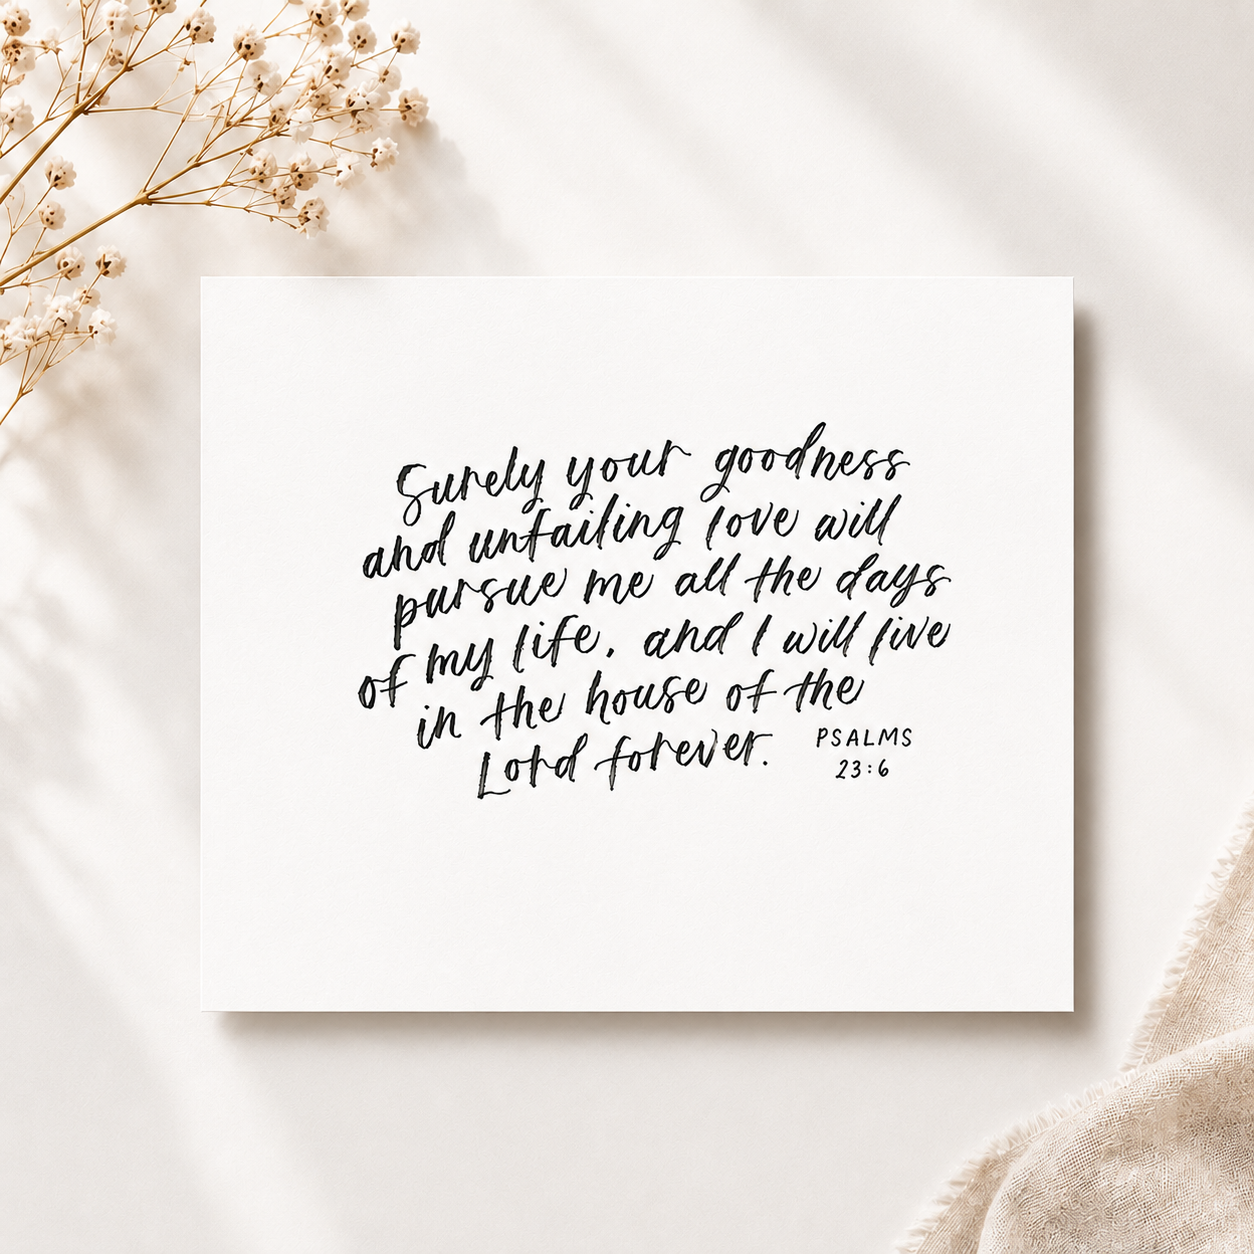 Surely your goodness
and unfailing love will
pursue me all the days
of my life, and I will live
in the house of the
Lord forever.
PSALMS
23:6